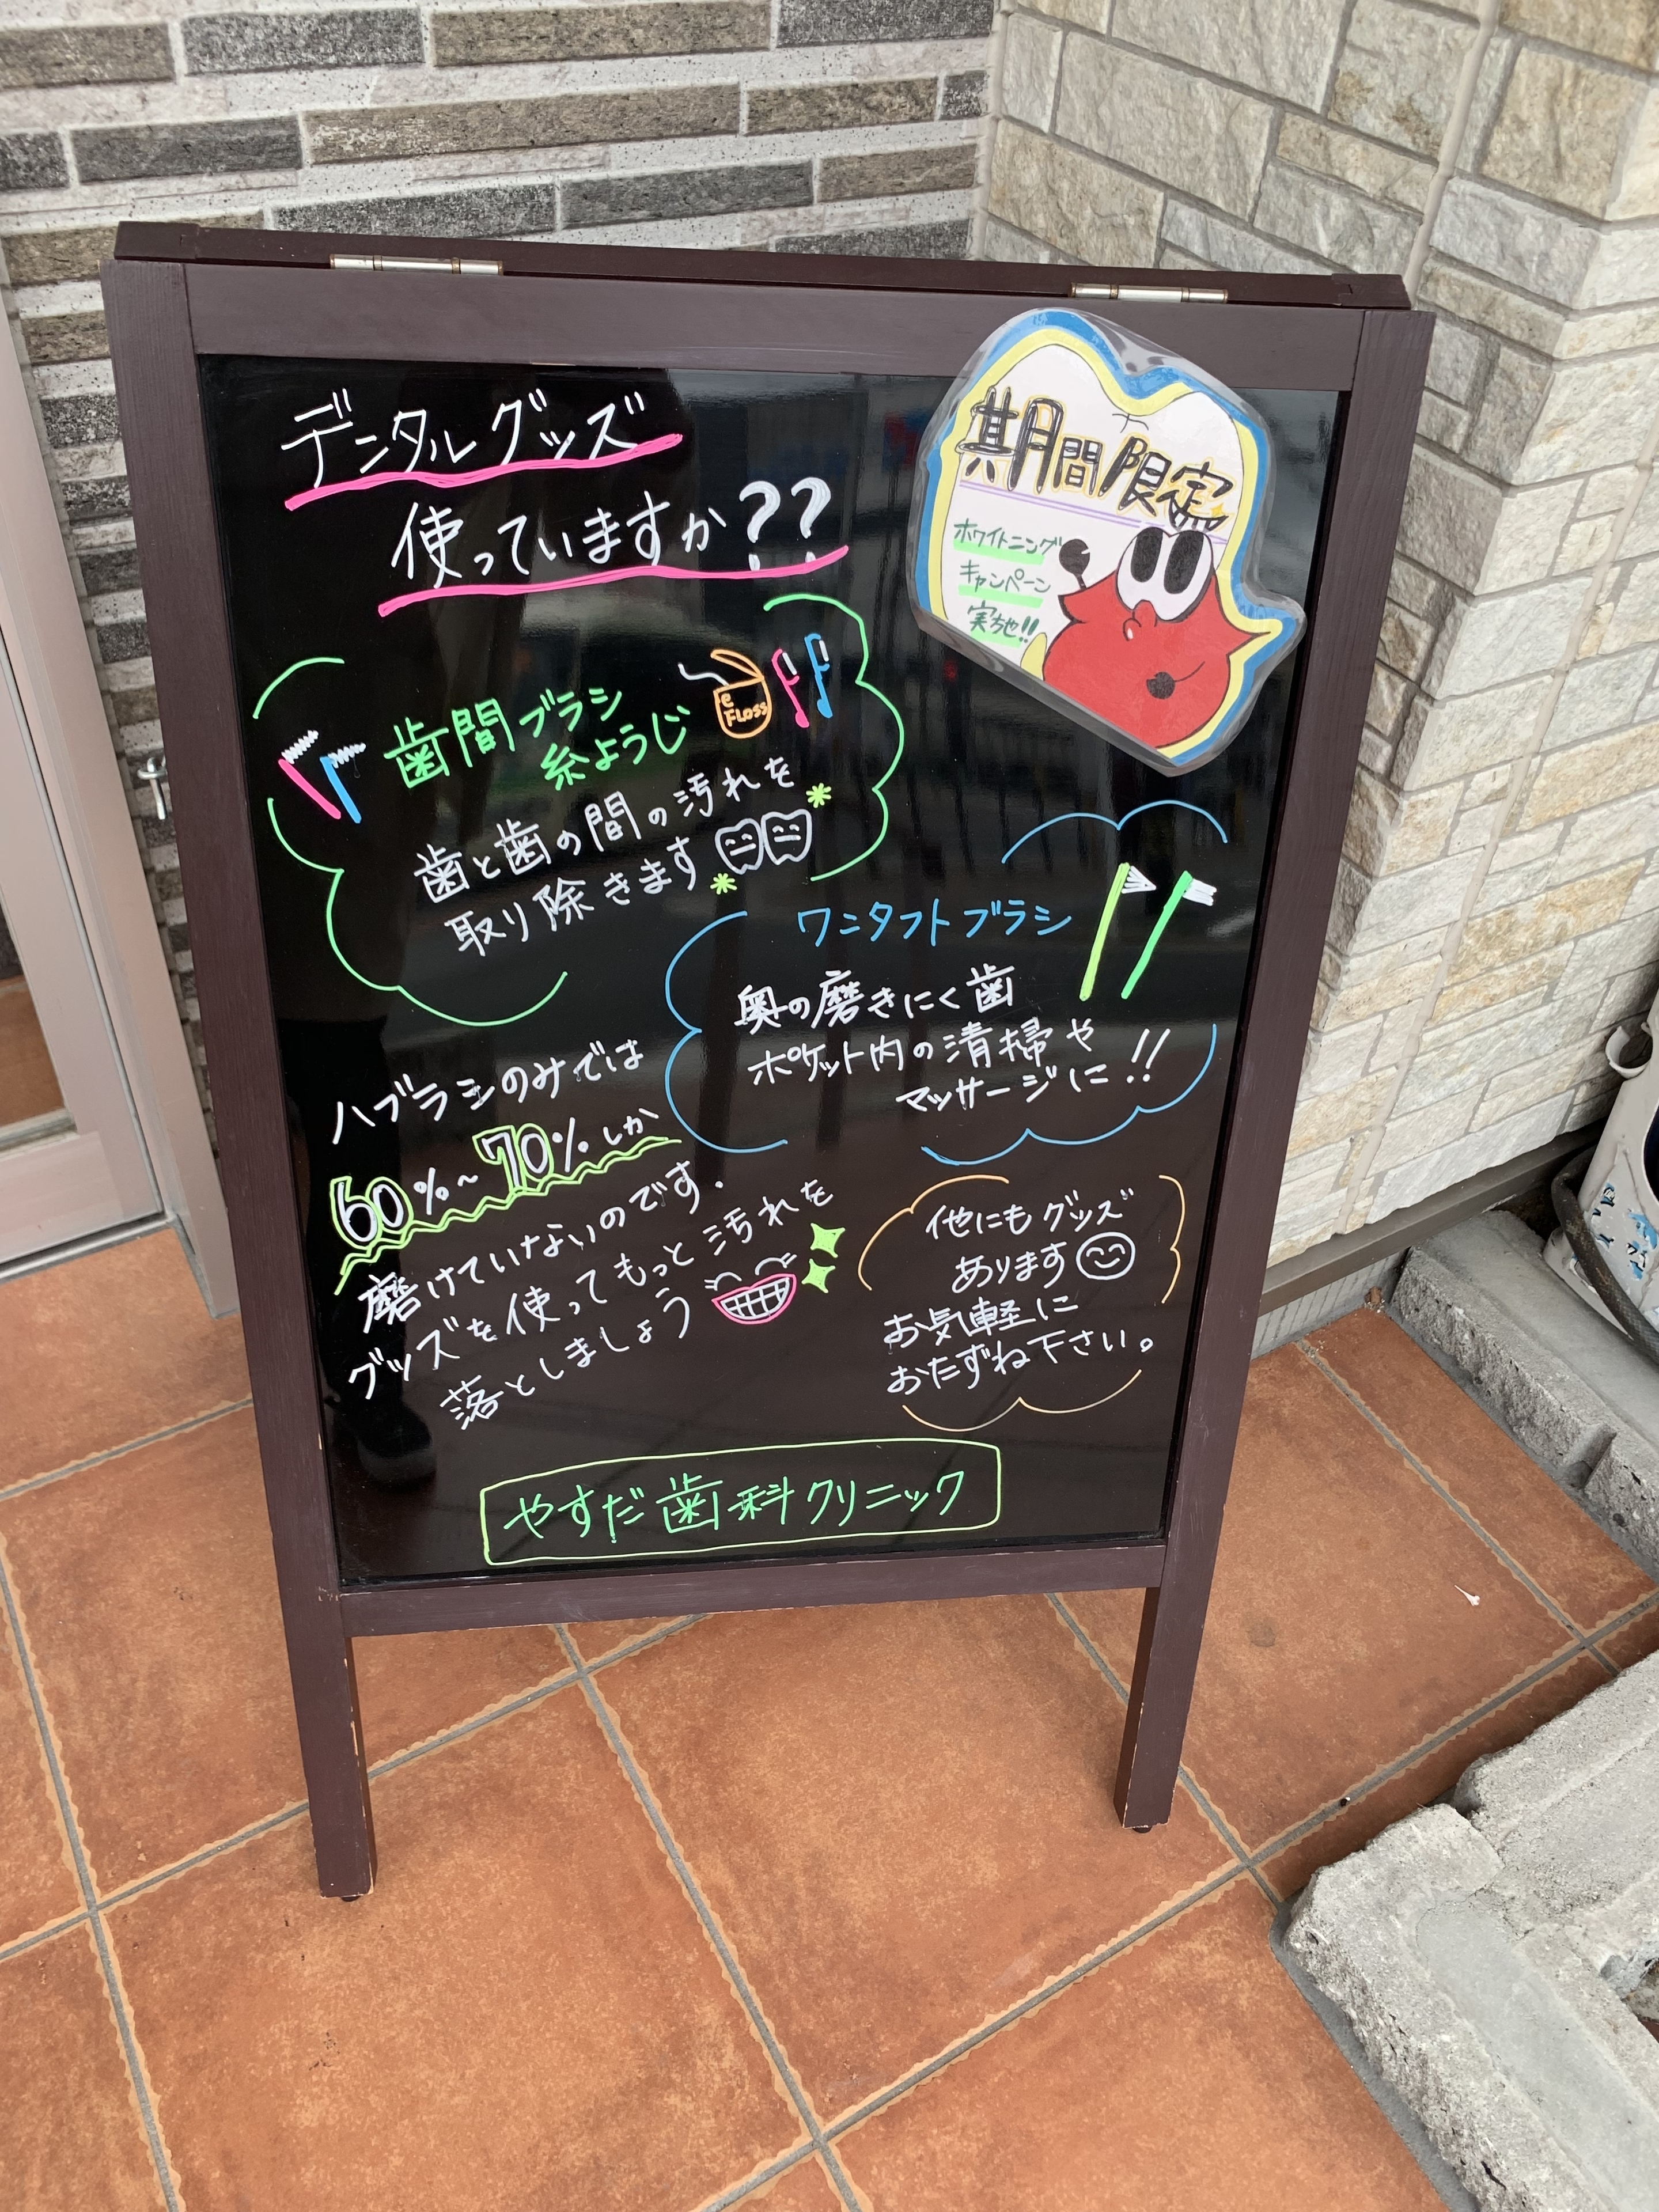 デンタルグッズ
使っていますか??
期間限定
ホワイトニング
キャンペーン
実施!!
歯間ブラシ
糸ようじ
e
FLOSS
歯と歯の間の汚れを
取り除きます
ワンタフトブラシ
奥の磨きにくい歯
ポケット内の清掃や
マッサージに!!
ハブラシのみでは
60%~70%しか
磨けていないのです.
グッズを使ってもっと汚れを
落としましょう
他にもグッズ
あります
お気軽に
おたずね下さい。
やすだ歯科クリニック